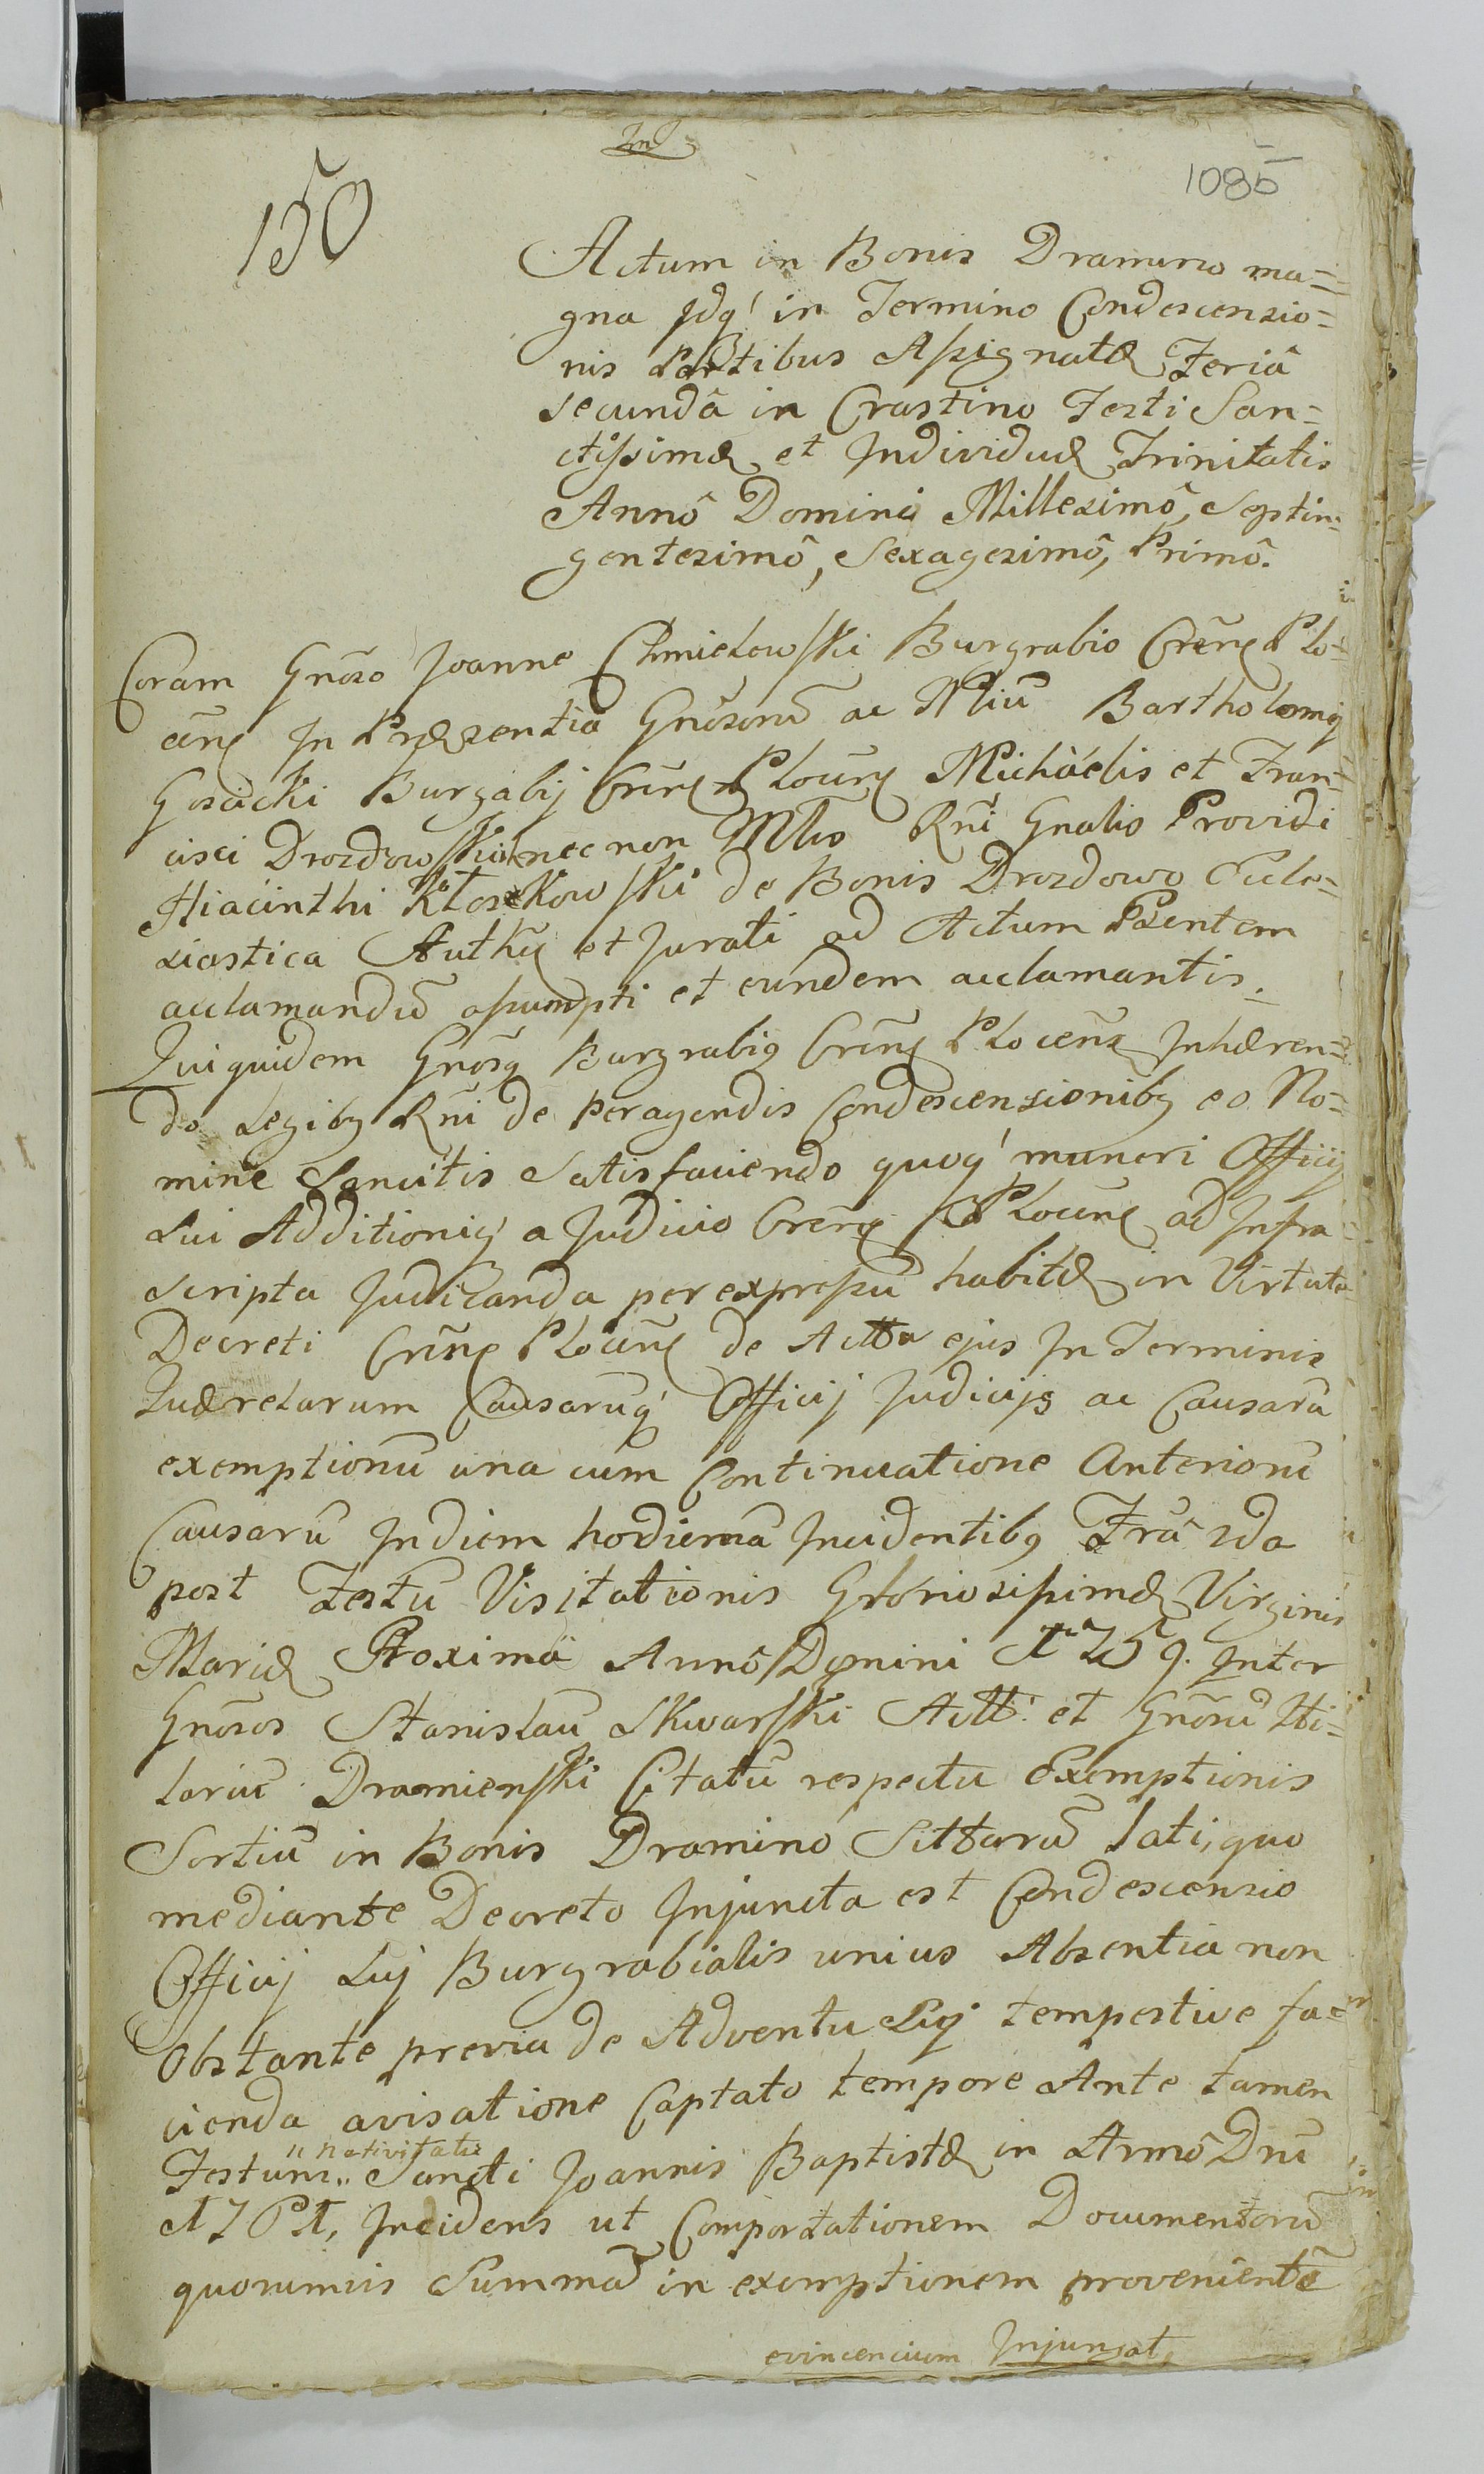 150
1085
Actum in Bonis Dramino ma=
gna Jdq́ in Termino Condescensio=
nis Partibus Assignatæ Feriâ
Secundâ in Crastino Festi San=
ctissimæ et Individuæ Trinitatis
Annô Domini Millesimô, Septin=
gentesimô, Sexagesimô, Primô.
Coram Gnõso Joanne Chmielowski Burgrabio Cren̄ Plo=
cen̄ In Præsentia Gnõsorũ ac Mliũ Bartholomęj
Gosiicki Burgabij Cren̄ Plocen̄ Michäelis et Fran=
cisci Drozdowskich nec non Mtis Rñi Gnalis Providi
Hiacinthi Kłoskowski de Bonis Drozdowo Eccle=
siastica Authen̄ et Jurati ad Actum Psentem
acclamandũ assumpti et eundem acclamantis.
Qui quidem Gnõsq Burgrabiq Cren̄ Plocen̄ Inhæren=
do Legibq Rñi de peragendis Condescensionibq eo No=
mine Sancitis Satisfaciendo quoq́ muneri Officij
Sui Additioniq́ a Judicio Cren̄ Plocen̄ ad Infra=
scripta Judicanda per expressũ habitæ in Virtute
Decreti Cren̄ Plocen̄ de Actta ejus In Terminis
Quærelarum Causarũq́ Officij Judicijs ac Causarũ
exemptionũ una cum Continuatione Anteriorũ
Causarũ In diem hodiernã Incidentibq Frâ 2da
post Festũ Visitationis Gloriosissimæ Virginis
Mariæ Proximâ Annô Domini 1759. Inter
Gnõsos Stanislaũ Skwarski Actt: et Gnõsũ Hi=
lariũ Dramienski Citatũ respectu Exemptionis
Sortiũ in Bonis Dramino Sittarũ lati, quo
mediante Decreto Injuncta est Condescensio
Officij Suj Burgrabialis unius Absentia non
Obstante previa de Adventu Suj tempestive fa=
cienda avisatione Captato tempore Ante tamen
" Nativitatis
Festum " Sancti Joannis Baptistæ in Annô Dnĩ
1761, Incidens ut Comportationem Documentorũ
quorumvis Summã in exemptionem provenientẽ
evincencium Injungat,